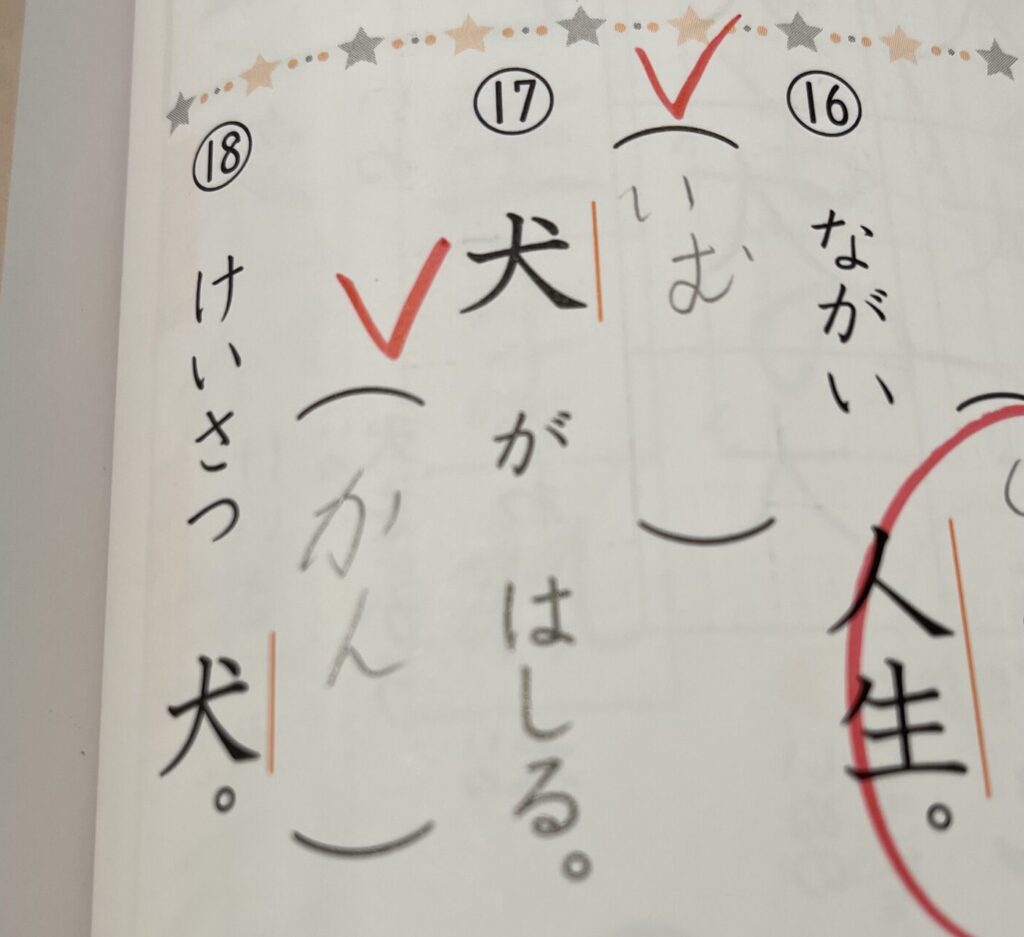 ⑯
ながい
人生。
いむ
⑰
犬がはしる。
かん
⑱
けいさつ犬。